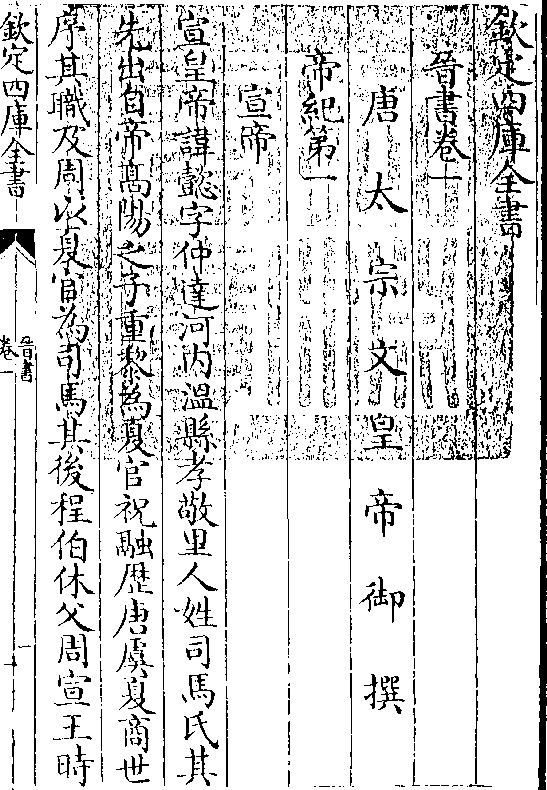 欽定四庫全書
晉書卷一
唐太宗文皇帝御撰
帝紀第一
宣帝
宣皇帝諱懿字仲達河內溫縣孝敬里人姓司馬氏其
先出自帝高陽之子重黎為夏官祝融歴唐虞夏商世
序其職及周以夏官為司馬其後程伯休父周宣王時
欽定四庫全書
晉書
卷一
一